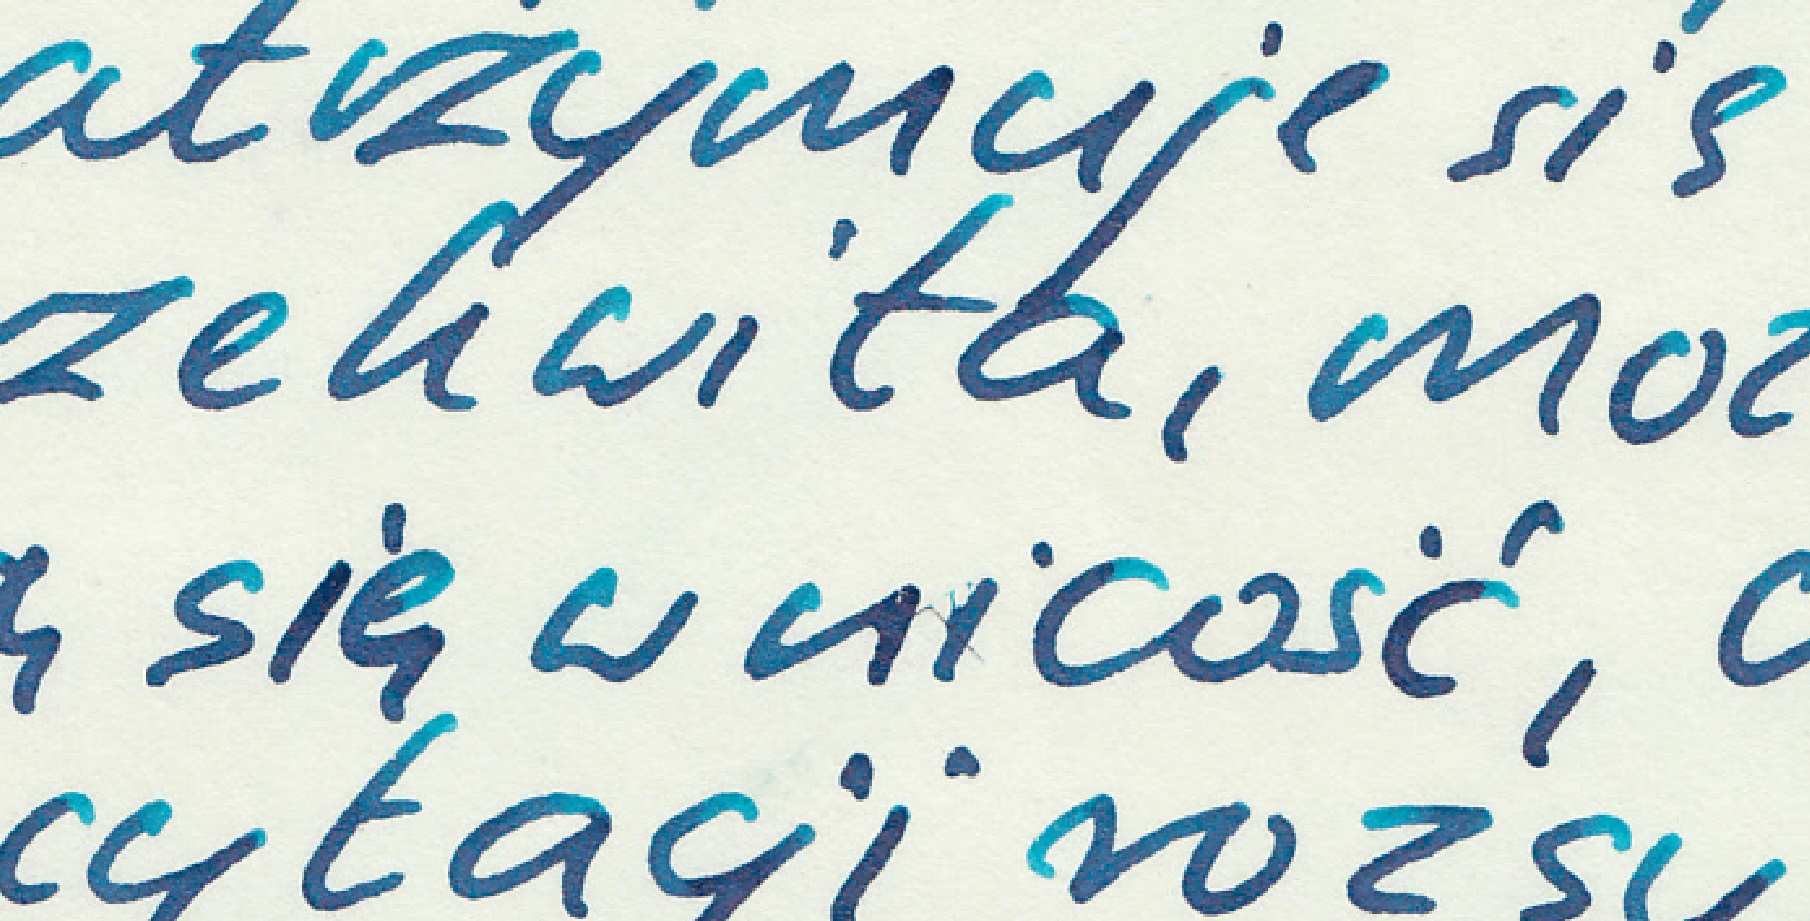 atrzymuje się
zekwita, moz
ą się w nicość, c
cytacji rozsy